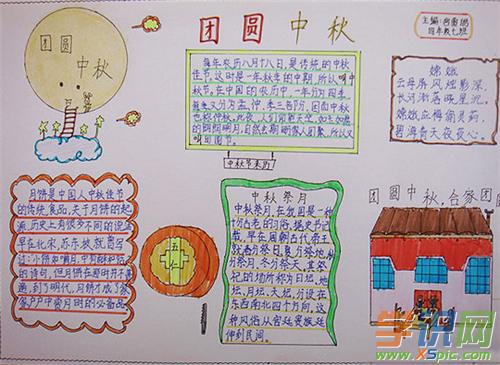 团圆中秋
主编:
四年级七班
团圆
中秋
每年农历八月十八日,是传统的中秋
佳节。这时是一年秋季的中期,所以叫中
秋节。在中国的农历中,一年分为四季,
每季又分为孟、仲、季三部分,因而中秋
也称仲秋。此夜,人们仰望天空,如玉如盘
的朗朗明月,自然会期盼家人团聚,所以又
叫团圆节。
中秋节来历
嫦娥
云母屏风烛影深,
长河渐落晓星沉。
嫦娥应悔偷灵药,
碧海青天夜夜心。
月饼是中国人中秋佳节
的传统食品,关于月饼的起
源,历史上有很多不同的说法
早在北宋,苏东坡就曾写
过"小饼如嚼月,中有酥和饴"
的诗句,但月饼在那时并不普
遍,到了明代,月饼才成了家
家户户中秋月时的必备品。
五仁
中秋祭月
中秋祭月,在我国是一种
十分古老的习俗。据史书记
载,早在周朝,古代帝王
就有春分祭日、夏分祭地、秋
分祭月、冬分祭天,其祭
祀的场所称为日坛、地
坛、月坛、天坛。分设在
东西南北四个方向,这
种风俗从宫廷贵族延
伸到民间。
团圆中秋,合家团圆
学识网
www.XSpic.com